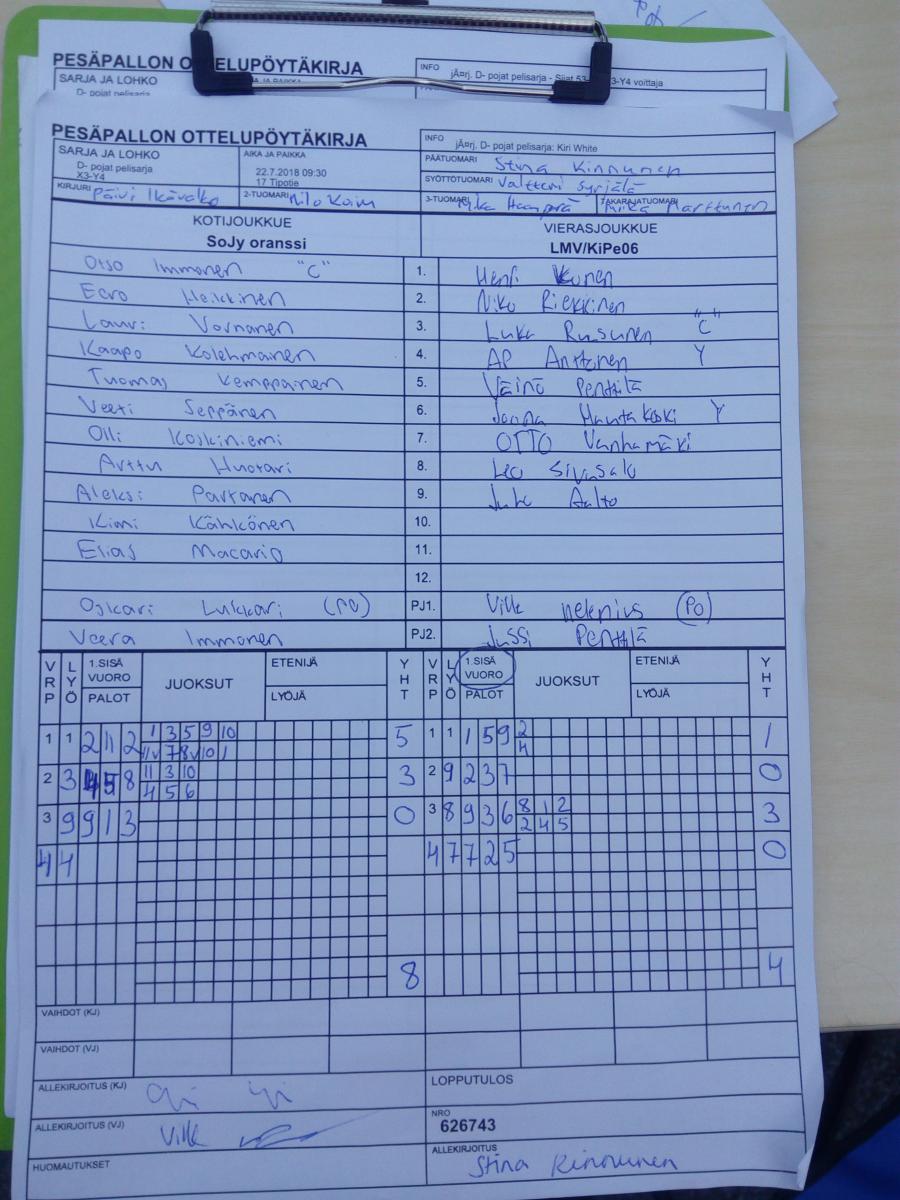 PESÄPALLON OTTELUPÖYTÄKIRJA
INFO
jÃ¤rj. D- pojat pelisarja - Sijat 53- 3-Y4 voittaja
SARJA JA LOHKO
D- pojat pelisarja
PESÄPALLON OTTELUPÖYTÄKIRJA
INFO jÃ¤rj. D- pojat pelisarja: Kiri White
SARJA JA LOHKO
D- pojat pelisarja
X3-Y4
AIKA JA PAIKKA
22.7.2018 09:30
17 Tipotie
PÄÄTUOMARI Stina Kinnunen
SYÖTTÖTUOMARI Valtteri Syrjälä
KIRJURI Päivi Ikävalko
2-TUOMARI Milo
3-TUOMARI Mika
TAKARAJATUOMARI Mika Marttunen
KOTIJOUKKUE
SoJy oranssi
VIERASJOUKKUE
LMV/KiPe06
Otso Immonen "C" 1. Henri
Eero Heikkinen 2. Niko Riekkinen
Lauri Vornanen 3. Luka Ruusunen "C"
Kaapo Kolehmainen 4. AP Anttonen Y
Tuomas Kemppainen 5. Väinö Penttilä
Veeti Seppänen 6. Joona Hautakoski Y
Olli Koskiniemi 7. OTTO Vanhamäki
Arttu Huotari 8. Leo Sivusalo
Aleksi Partanen 9. Juho Aalto
Kimi Kähkönen 10.
Elias Macario 11.
12.
Oskari Lukkari (PO) PJ1. Ville Helenius (PO)
Veera Immonen PJ2. Jussi Penttilä
VRP LYÖ 1.SISÄ VUORO PALOT JUOKSUT ETENIJÄ LYÖJÄ YHT VRP LYÖ 1.SISÄ VUORO PALOT JUOKSUT ETENIJÄ LYÖJÄ YHT
1 1 2 11 2 1 3 5 9 10 5 1 1 1 5 9 2 1
7 8 10 1 4
2 3 8 11 3 10 3 2 9 2 3 7 0
4 5 6
3 9 9 1 3 0 3 8 9 3 6 8 1 2 3
2 4 5
4 4 4 7 7 2 5 0
8 4
VAIHDOT (KJ)
VAIHDOT (VJ)
ALLEKIRJOITUS (KJ)
LOPPUTULOS
ALLEKIRJOITUS (VJ) Ville
NRO
626743
HUOMAUTUKSET
ALLEKIRJOITUS
Stina Kinnunen